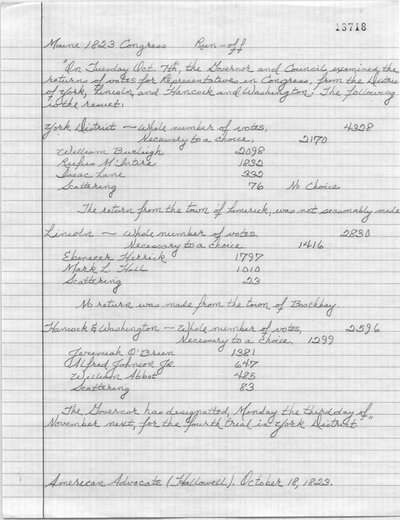 13718
Maine 1823 Congress Run-off
"On Tuesday Oct. 7th, the Governor and Council examined the
returns of votes for Representatives in Congress, from the Distric
of York, Lincoln, and Hancock and Washington. The following
is the result:
York District — Whole number of votes, 4328
Necessary to a choice, 2170
William Burleigh 2098
Rufus McIntire 1832
Isaac Lane 332
Scattering 76 No Choice
The return from the town of Limerick, was not seasonably made
Lincoln — Whole number of votes 2830
Necessary to a choice 1416
Ebenezer Herrick 1797
Mark L. Hill 1010
Scattering 23
No return was made from the town of Boothbay.
Hancock & Washington — Whole number of votes, 2596
Necessary to a choice, 1299
Jeremiah O'Brien 1381
Alfred Johnson Jr. 647
William Abbot 485
Scattering 83
The Governor has designated, Monday the third day of
November next, for the fourth trial in York District."
American Advocate (Hallowell). October 18, 1823.